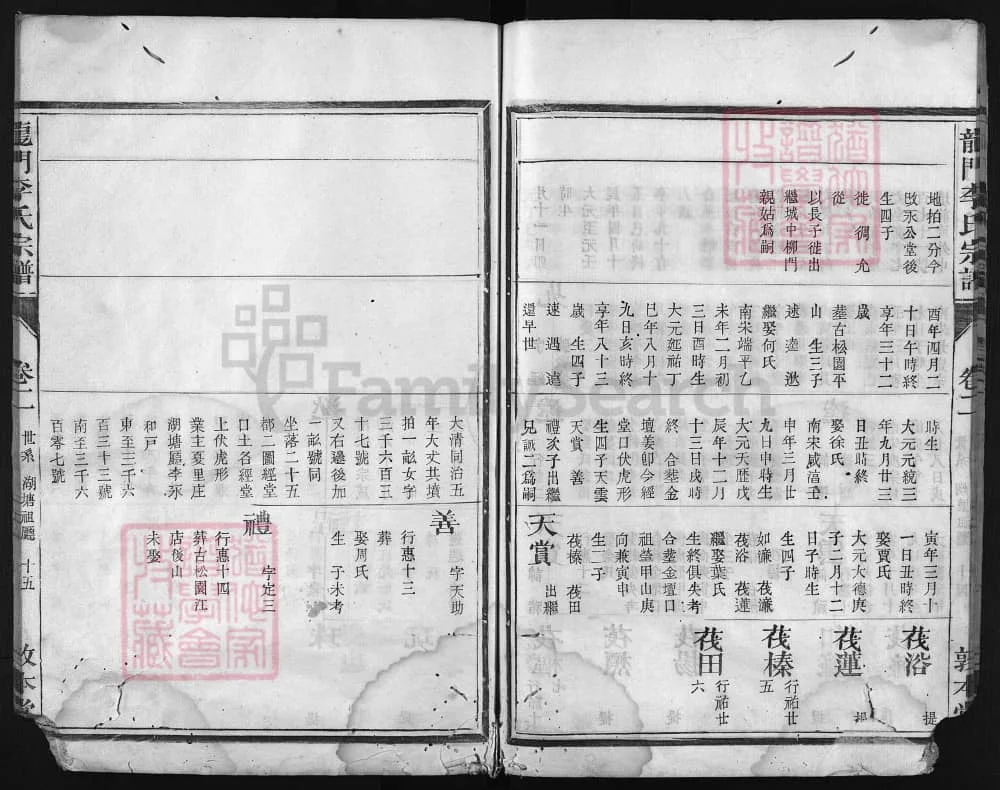 龍門李氏宗譜
卷一
敦本堂
地拍二分今
改汞公堂後
生四子
徙 徟 允
從
以長子徙出
繼城中柳門
親姑爲嗣
酉年四月二
十日午時終
享年三十二
歲
墓古松園平
山 生三子
逑 逵 逖
繼娶何氏
南宋端平乙
未年二月初
三日酉時生
大元延祐丁
巳年八月十
九日亥時終
享年八十三
歲 生四子
速 遇 達
還早世
時生
大元元統三
年九月廿三
日丑時終
娶徐氏
南宋咸淳壬
申年三月廿
九日申時生
大元天歷戌
辰年十二月
十三日戌時
終 合塟金
壇美卽今經
堂口伏虎形
生四子天雲
天賞 善
禮次子出繼
兄誠二爲嗣
寅年三月十
一日丑時終
娶賈氏
大元大德庚
子二月十二
日子時生
生四子
如濂 茷濂
茷浴 茷蓮
繼娶葉氏
生終俱失考
合塟金壇口
祖塋甲山庚
向兼寅申
生二子
茷榛 茷田
天賞 出繼
茷浴 提
茷蓮 提
茷榛 行祐廿五
茷田 行祐廿六
大清同治五
年大丈共墳
拍一畝女字
三千六百三
十七號
又右邊後加
一畝號同
坐落二十五
都二圖經堂
口土名經堂
上伏虎形
業主夏里庄
湖塘廳李永
和戸
東至三千六
百三十三號
南至三千六
百零七號
善 字天助
行惠十三
葬
娶周氏
生 子未考
禮 字定三
行惠十四
葬古松園江
店後山
未娶
龍門李氏宗譜
卷一
世系 湖塘祖廳 十五
敦本堂
FamilySearch